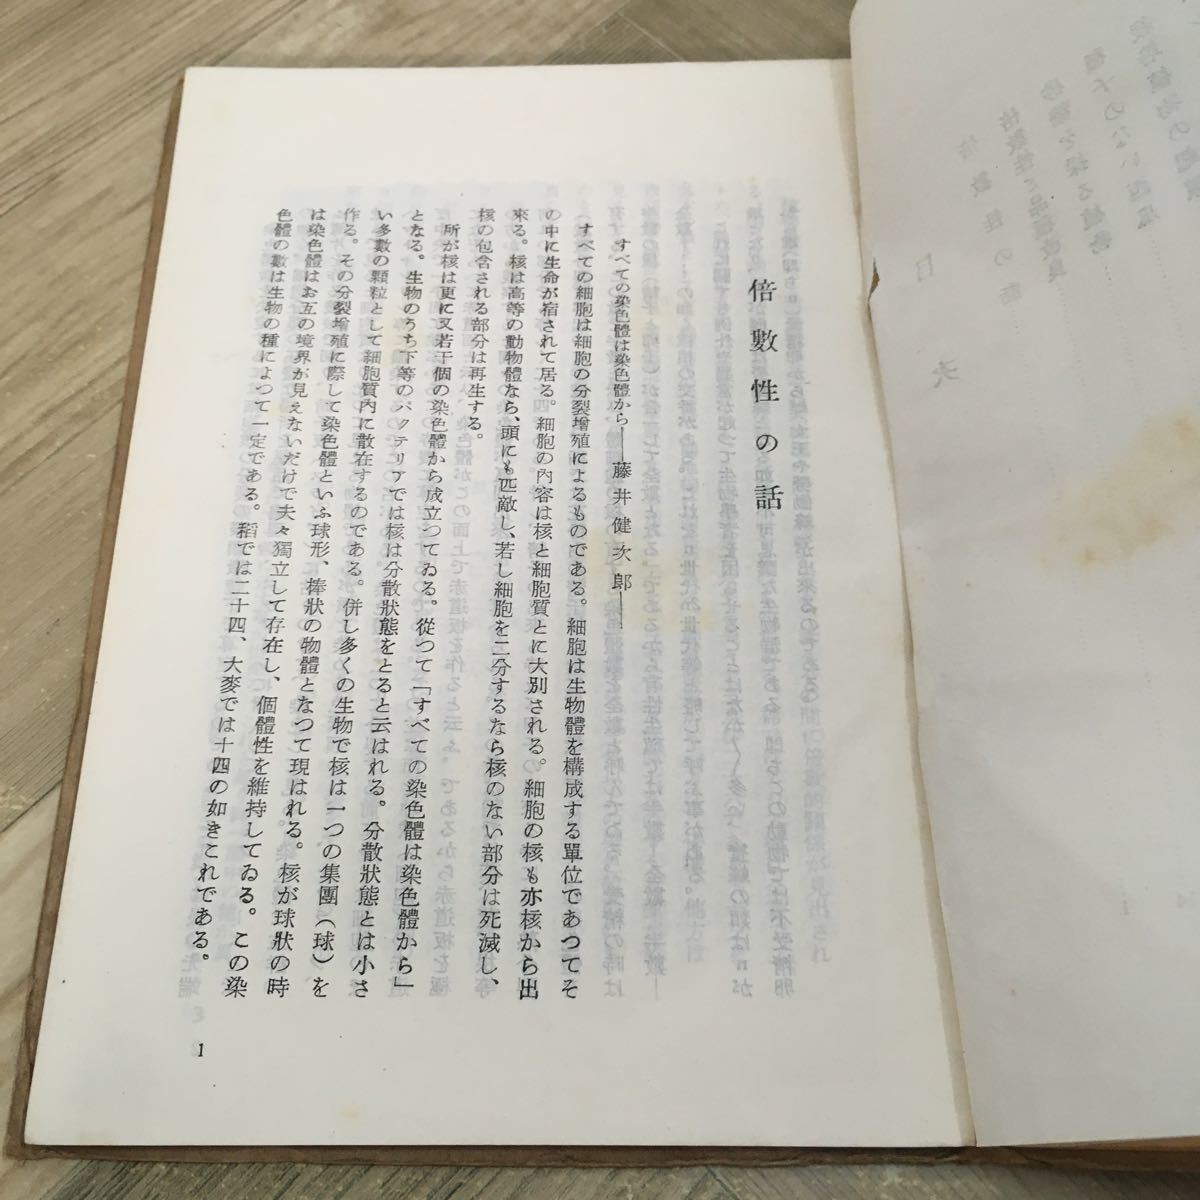 倍數性の話
すべての染色體は染色體から――藤井健次郎――
すべての細胞は細胞の分裂增殖によるものである。細胞は生物體を構成する單位であつてそ
の中に生命が宿されて居る。細胞の內容は核と細胞質とに大別される。細胞の核も亦核から出
來る。核は高等の動物體なら、頭にも匹敵し、若し細胞を二分するなら核のない部分は死滅し、
核の包含される部分は再生する。
所が核は更に又若干個の染色體から成立つてゐる。從つて「すべての染色體は染色體から」
となる。生物のうち下等のバクテリアでは核は分散狀態をとると云はれる。分散狀態とは小さ
い多數の顆粒として細胞質內に散在するのである。併し多くの生物で核は一つの集團(球)を
作る。その分裂增殖に際して染色體といふ球形、棒狀の物體となつて現はれる。核が球狀の時
は染色體はお互の境界が見えないだけで夫々獨立して存在し、個體性を維持してゐる。この染
色體の數は生物の種によつて一定である。稻では二十四、大麥では十四の如きこれである。
1